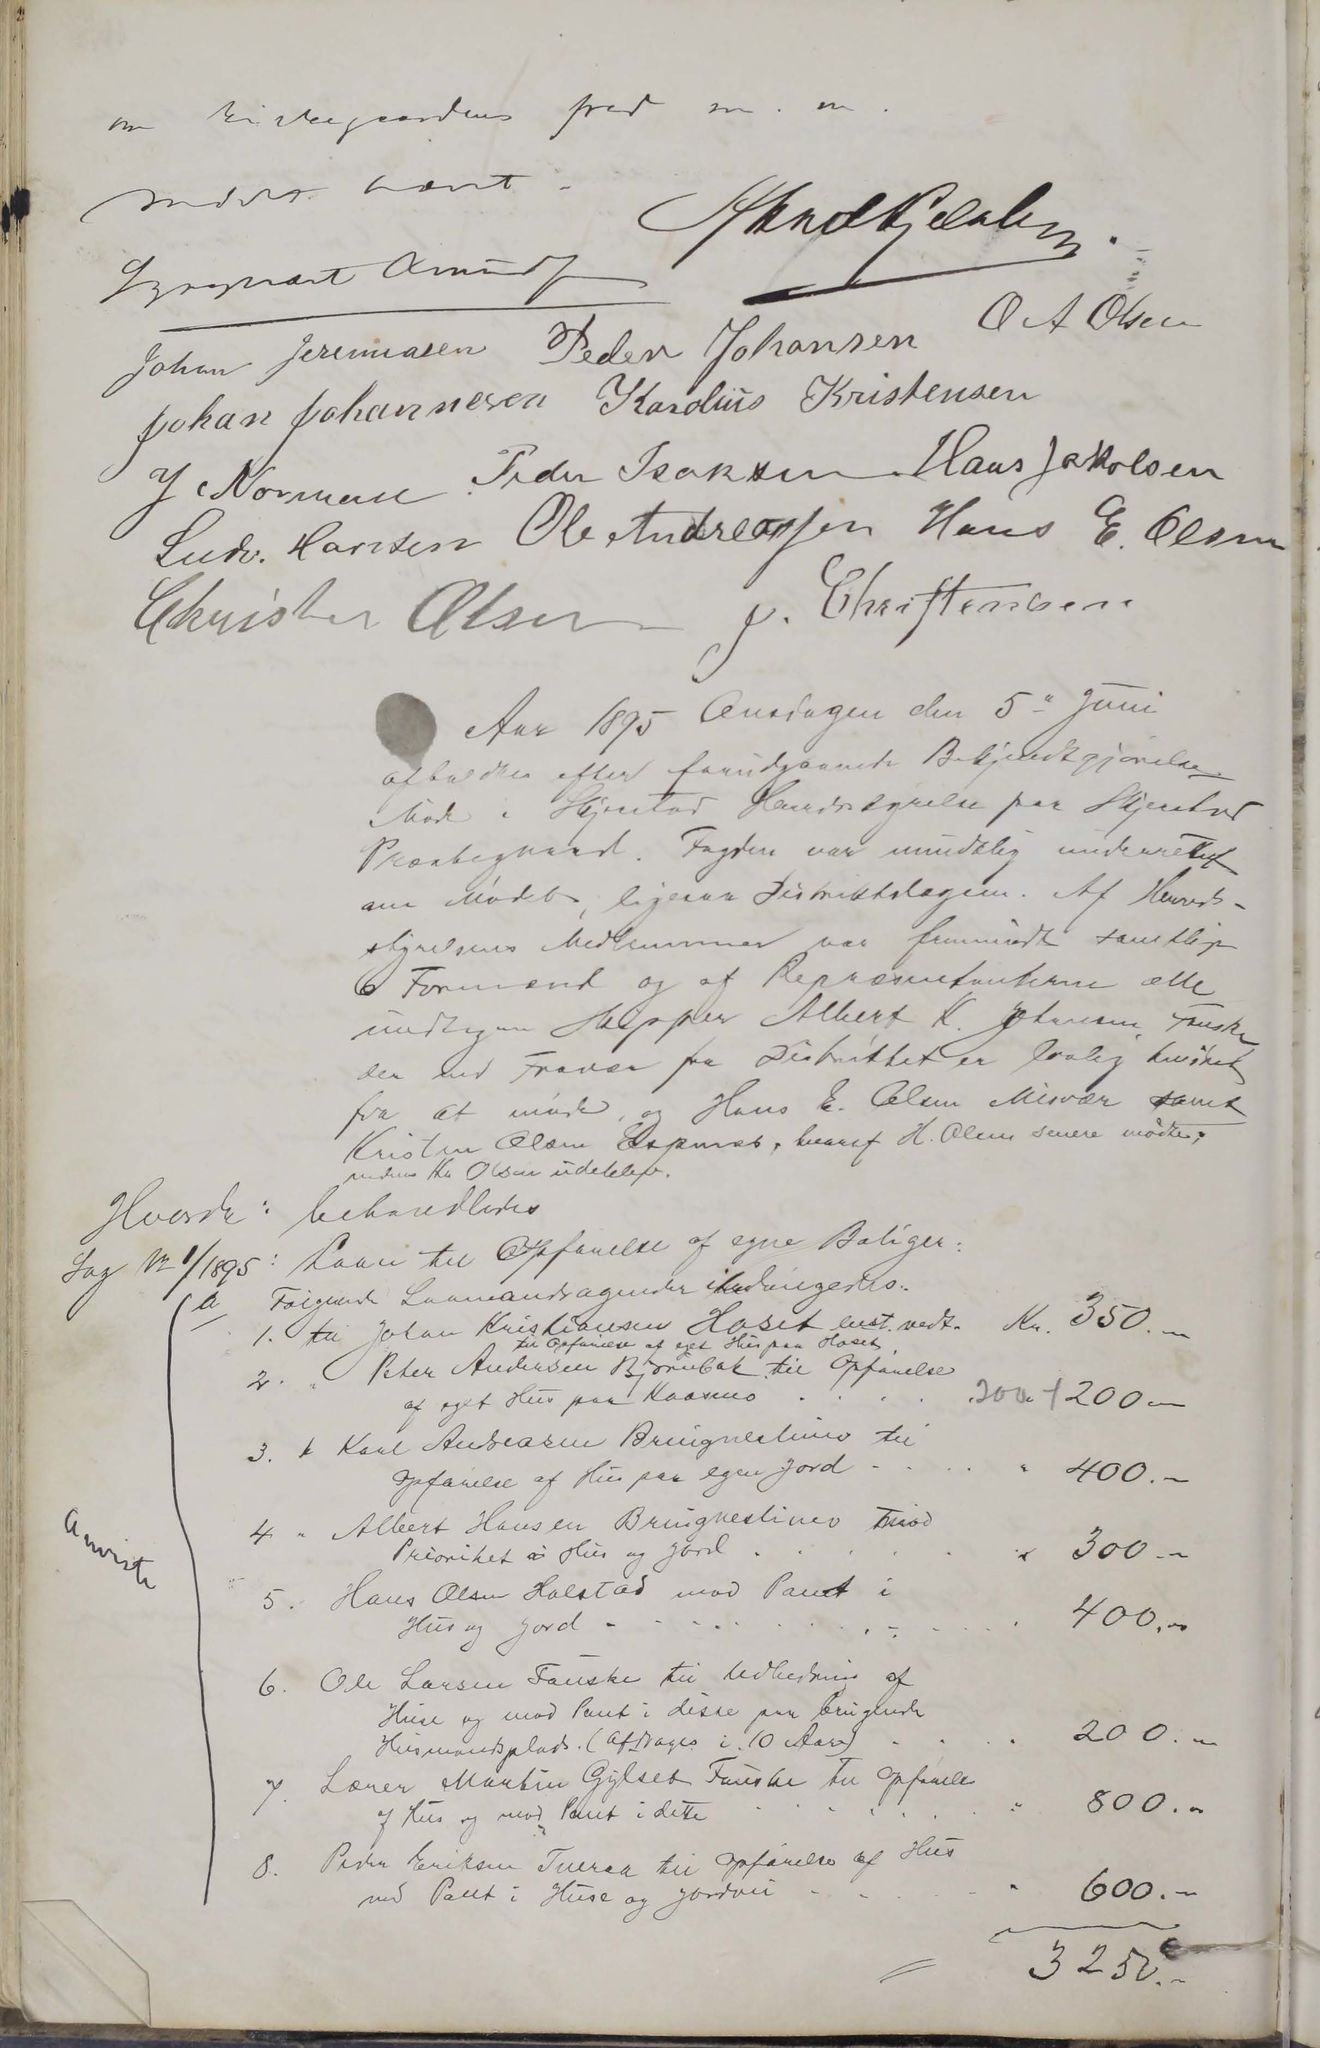 om Kirkegaardens fred m. m.
Mødet hævet.
Lyngmart Amunds
Johan Jeremiasen Peder Johansen O A Olsen
Johan Johannesen Karolius Kristensen
J Norman Peder Isaksen Hans Jakolsen
Ludv. Hansen Ole Andreassen Hans E. Olsen
Christen Olsen J. Christensen
Aar 1895 Onsdagen den 5" Juni
afholdtes efter forudgaaende Bekjendtgjørelse
Møde i Skjerstad Herredsstyrelse paa Skjerstad
Præstegaard. Fogden var mundtlig underrettet
om Mødet, ligesaa Distriktslægen. Af Herreds-
styrelsens Medlemmer var fremmødt samtlige
6 Formænd og af Repræsentanterne alle
undtagen Skipper Albert K. Johansen, Fauske
der ved Fravær fra Distriktet er lovlig hindret
fra at møde, og Hans E. Olsen Misvær samt
Kristen Olsen Espenes, hvoraf H. Olsen senere mødte,
medens Kr Olsen udeblev.
Hvorda: behandledes
Sag No 1/1895: Laan til Opførelse af egne Boliger:
a Følgende Laaneandragender
1. til Johan Kristiansen Hoset enst. vedt. Kr. 350.-
til Opførelse af eget Hus paa Hoset
2. " Peter Andersen Bjørnbak til Opførelse
af eget Hus paa Kaasmo . . . . 200 + 200.-
3. " Karl Andreasen Bringneslimo til
Opførelse af Hus paa egen Jord - . . . " 400.-
Anviste
4 " Albert Hansen Bringneslimo mod
Prioritet i Hus og Jord . . . . " 300.-
5. Hans Olsen Halstad mod Pant i
Hus og Jord - . . . . 400.-
6. Ole Larsen Fauske til Udbedring af
Huse og mod Pant i disse paa brugende
Husmandsplads. (Afdrages i 10 Aar) . . . 200.-
7. Lærer Martin Gylset Fauske til Opførelse
af Hus og mod Pant i dette . . . . " 800.-
8. Peder Eriksen Tveraa til Opførelse af Hus
ved Pant i Huse og Jordvei . . . . " 600.-
= 3250.-